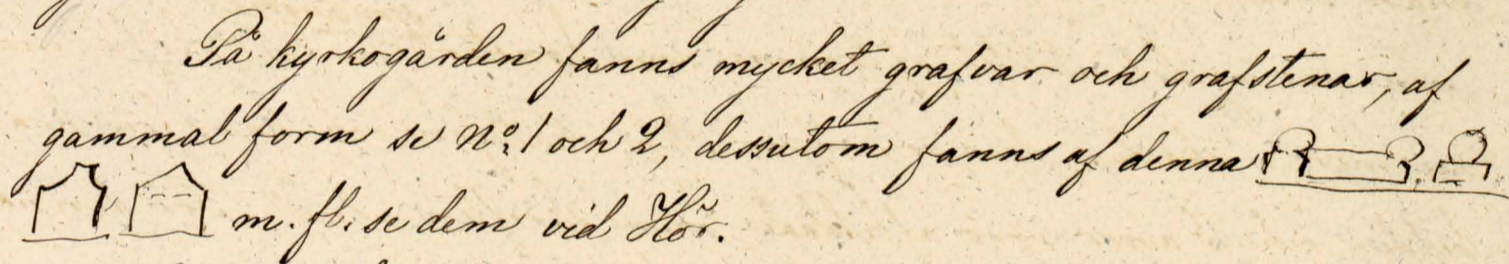 På kyrkogården fanns mycket grafvar och grafstenar, af
gammal form se No. 1 och 2, dessutom fanns af denna
m. fl. se dem vid Hör.